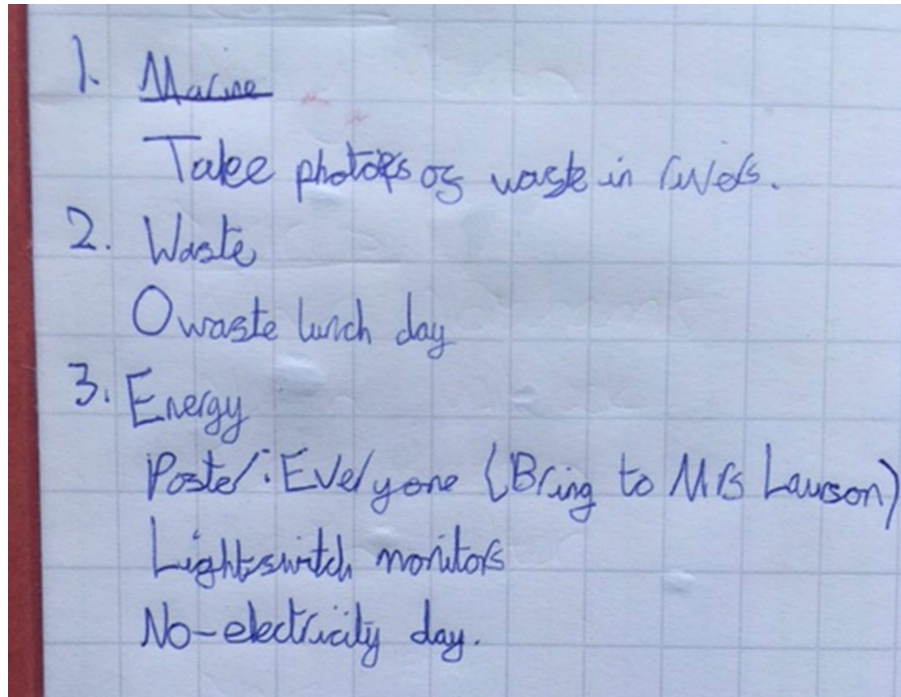 1. Marine
Take photos of waste in rivers.
2. Waste
0 waste lunch day
3. Energy
Poster: Everyone (Bring to Mrs Lawson)
Lightswitch monitors
No-electricity day.